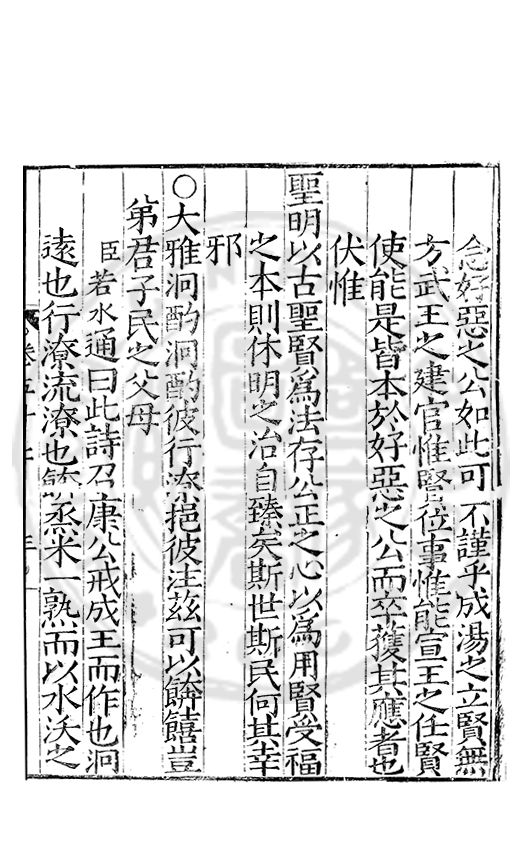 念好惡之公如此可不謹乎成湯之立賢無
方武王之建官惟賢位事惟能宣王之任賢
使能是皆本於好惡之公而卒獲其應者也
伏惟
聖明以古聖賢爲法存公正之心以爲用賢受福
之本則休明之治自臻矣斯世斯民何其幸
邪
○大雅泂酌泂酌彼行潦挹彼注茲可以餴饎豈
弟君子民之父母
臣若水通曰此詩召康公戒成王而作也泂
遠也行潦流潦也餴烝米一熟而以水沃之
卷五十